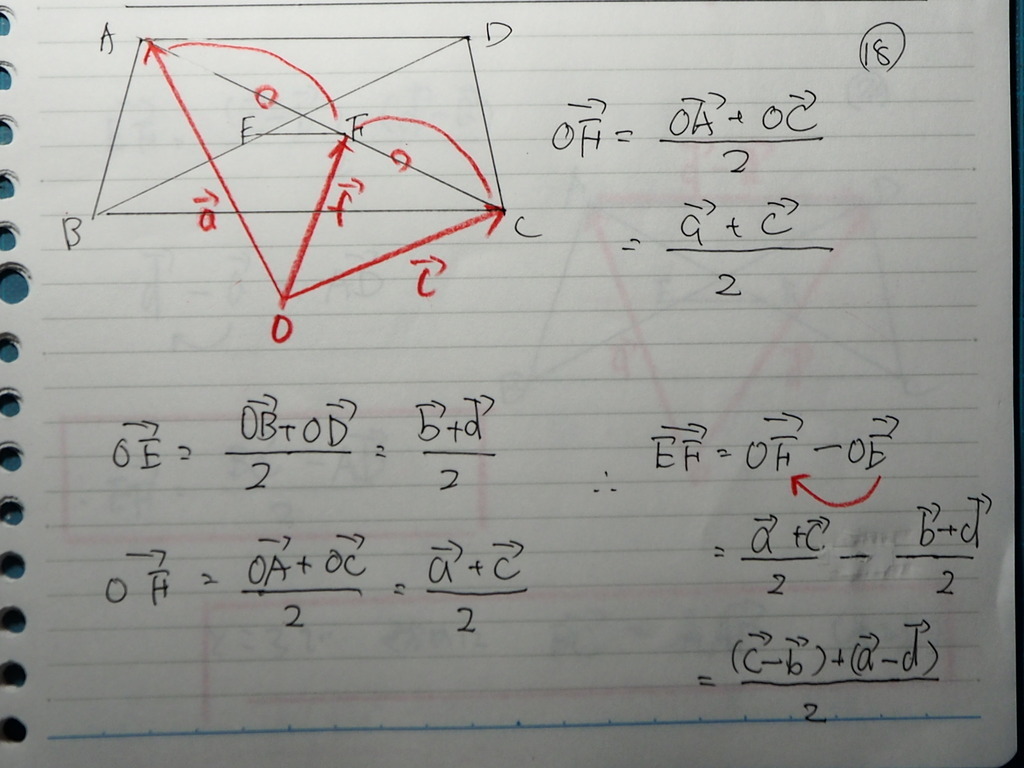 A D ⑱
E F
B C
a⃗ f⃗ c⃗
O
OF⃗ = (OA⃗ + OC⃗)/2
= (a⃗ + c⃗)/2
OE⃗ = (OB⃗ + OD⃗)/2 = (b⃗ + d⃗)/2
OF⃗ = (OA⃗ + OC⃗)/2 = (a⃗ + c⃗)/2
∴ EF⃗ = OF⃗ − OE⃗
= (a⃗ + c⃗)/2 − (b⃗ + d⃗)/2
= ((c⃗ − b⃗) + (a⃗ − d⃗))/2